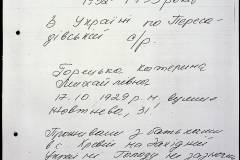 1932-1933 років
В Україні по Пересадівській с/р.
Горецька Катерина
Михайлівна
17.10.1929 р.н, вулиця
Жовтнева, 31,
Проживали з батьками
в с.                на Західній
Україні Голоду не зазнала